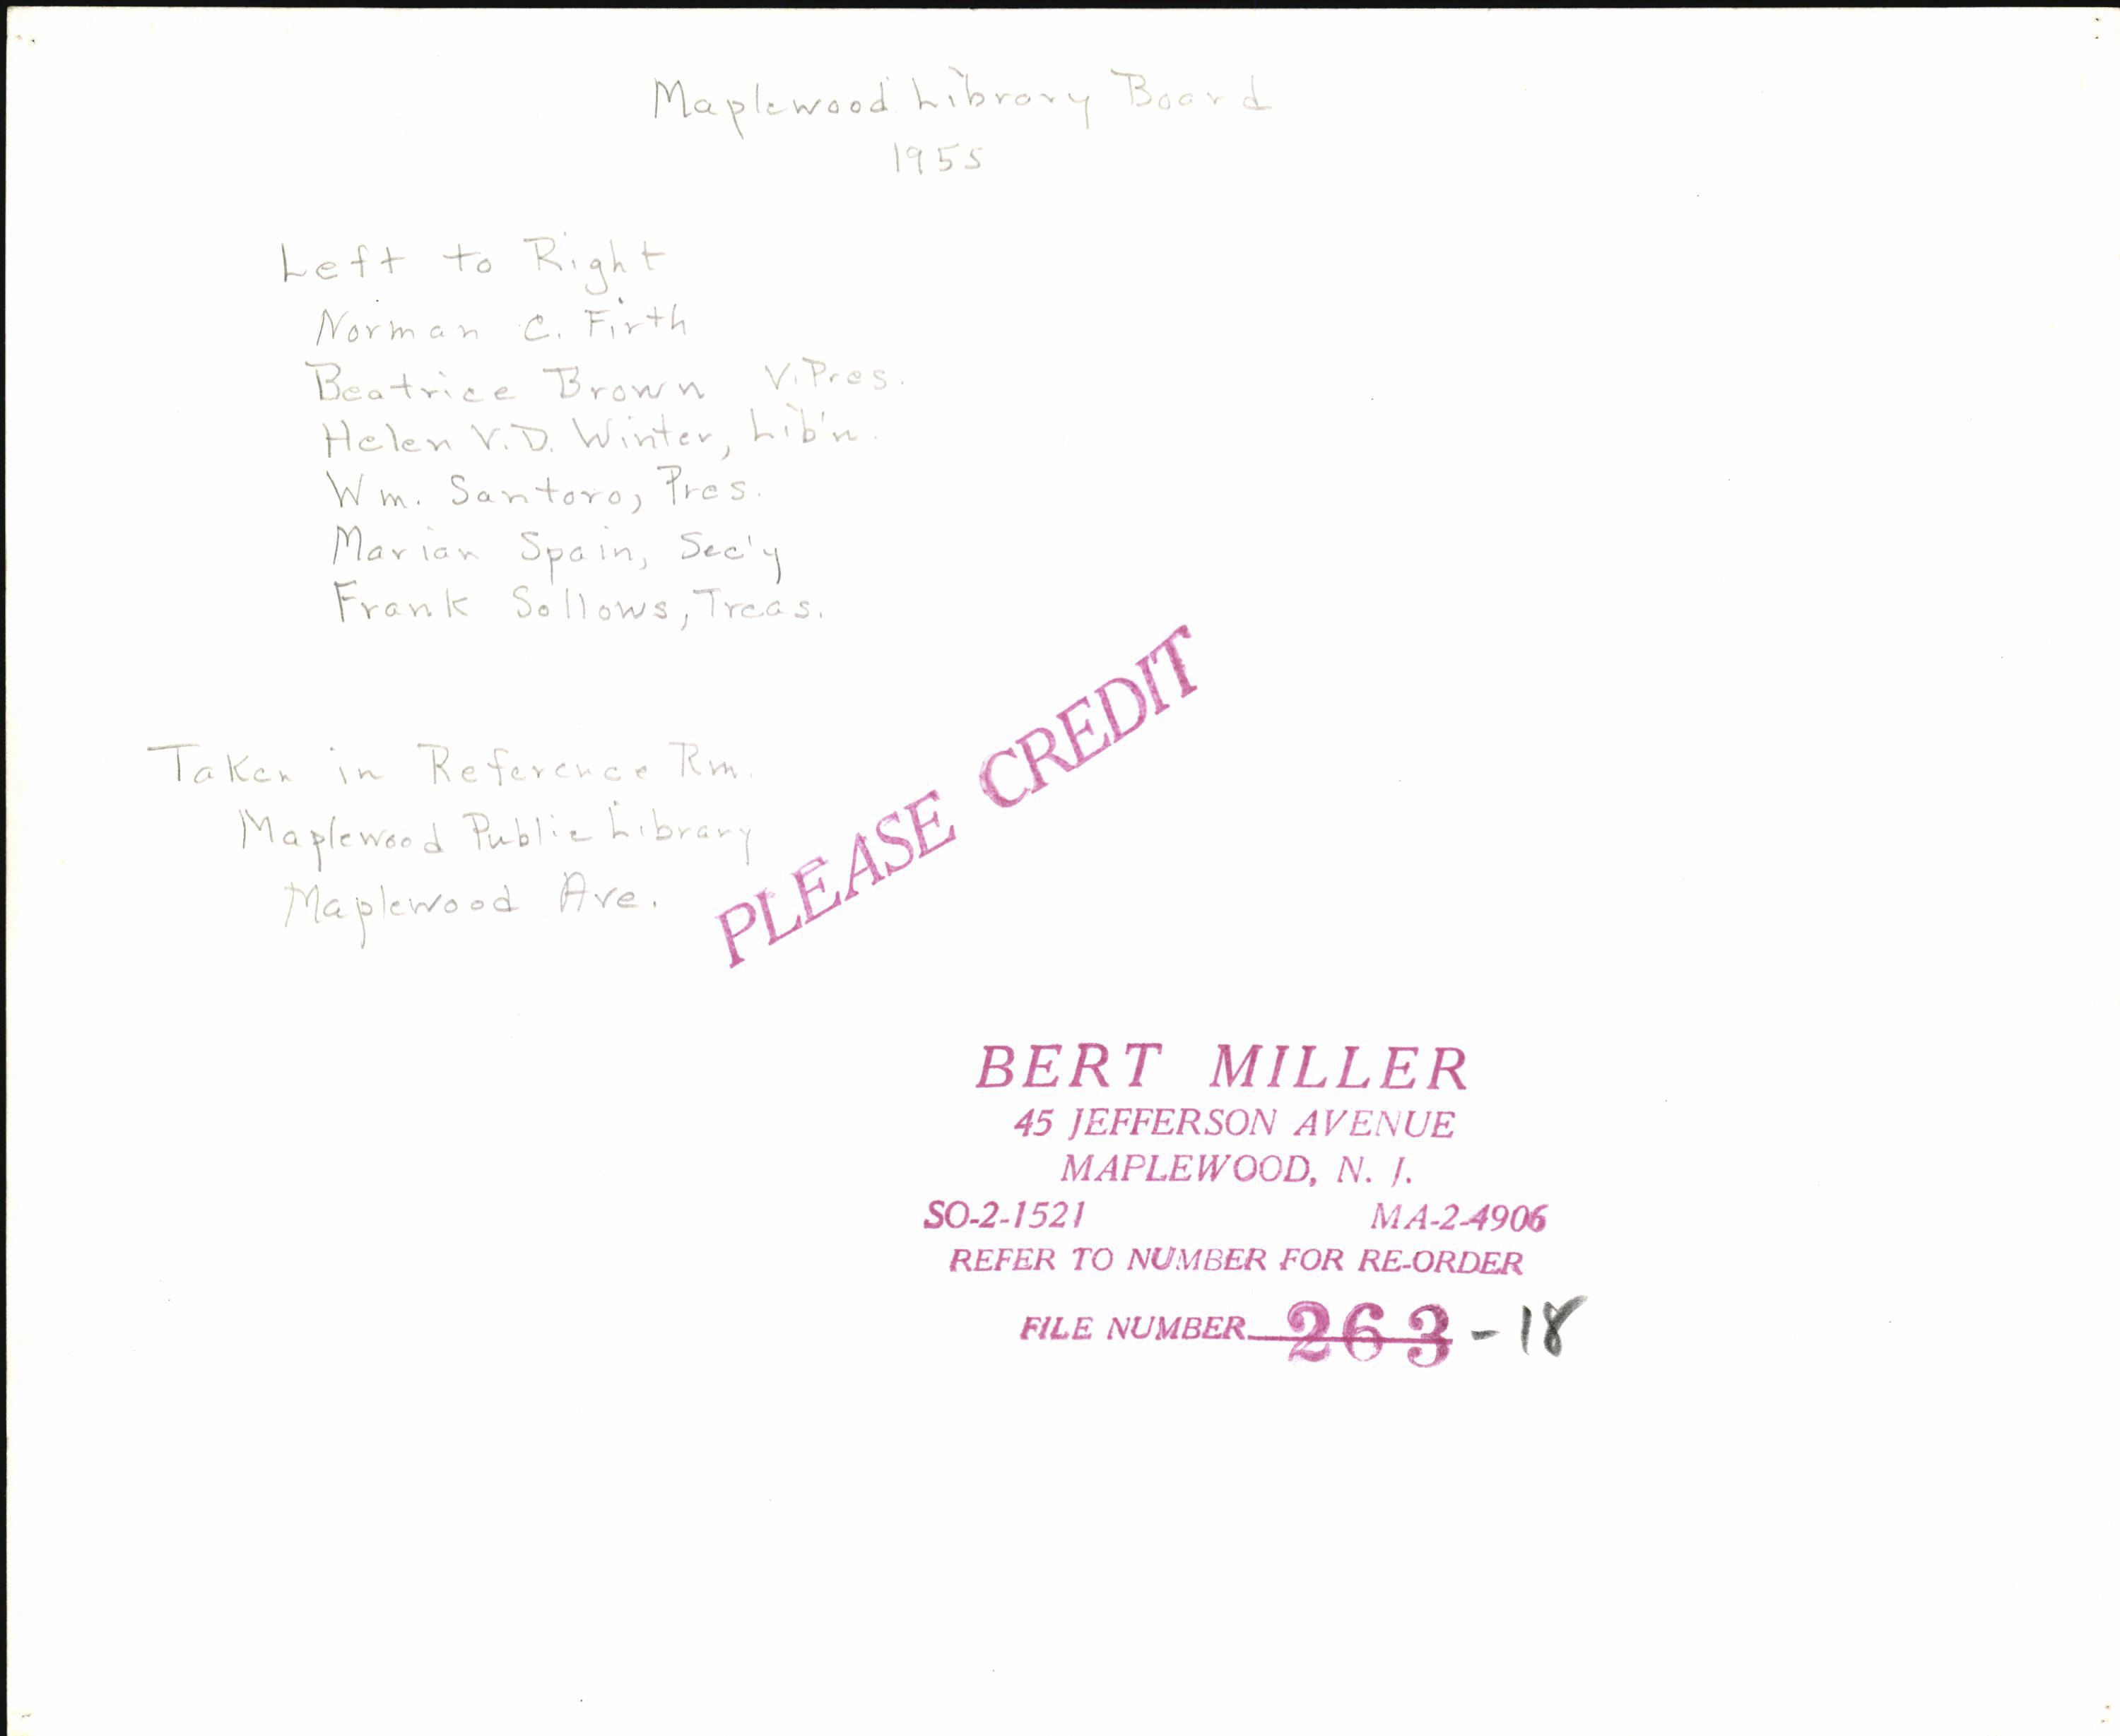 Maplewood Library Board
1955
Left to Right
Norman C. Firth
Beatrice Brown V. Pres.
Helen V.D. Winter, Lib'n.
Wm. Santoro, Pres.
Marian Spain, Sec'y
Frank Sollows, Treas.
Taken in Reference Rm.
Maplewood Public Library
Maplewood Ave.
PLEASE CREDIT
BERT MILLER
45 JEFFERSON AVENUE
MAPLEWOOD, N. J.
SO-2-1521 MA-2-4906
REFER TO NUMBER FOR RE-ORDER
FILE NUMBER 263-18